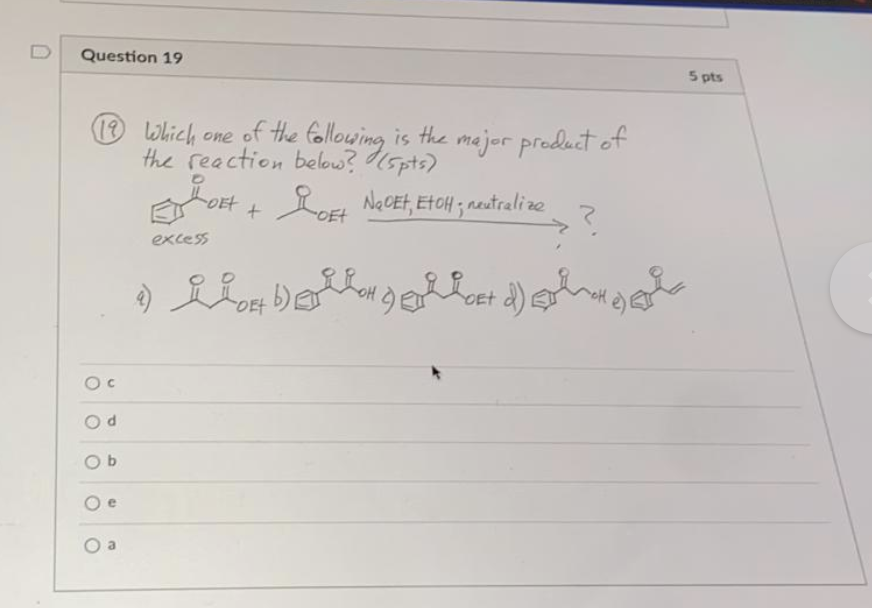 Question 19
5 pts
(19) Which one of the following is the major product of
the reaction below? (5pts)
O
OEt + O OEt NaOEt, EtOH; neutralize ?
excess
a) O O OEt b) O O OH c) O O OEt d) O OH e) O
c
d
b
e
a